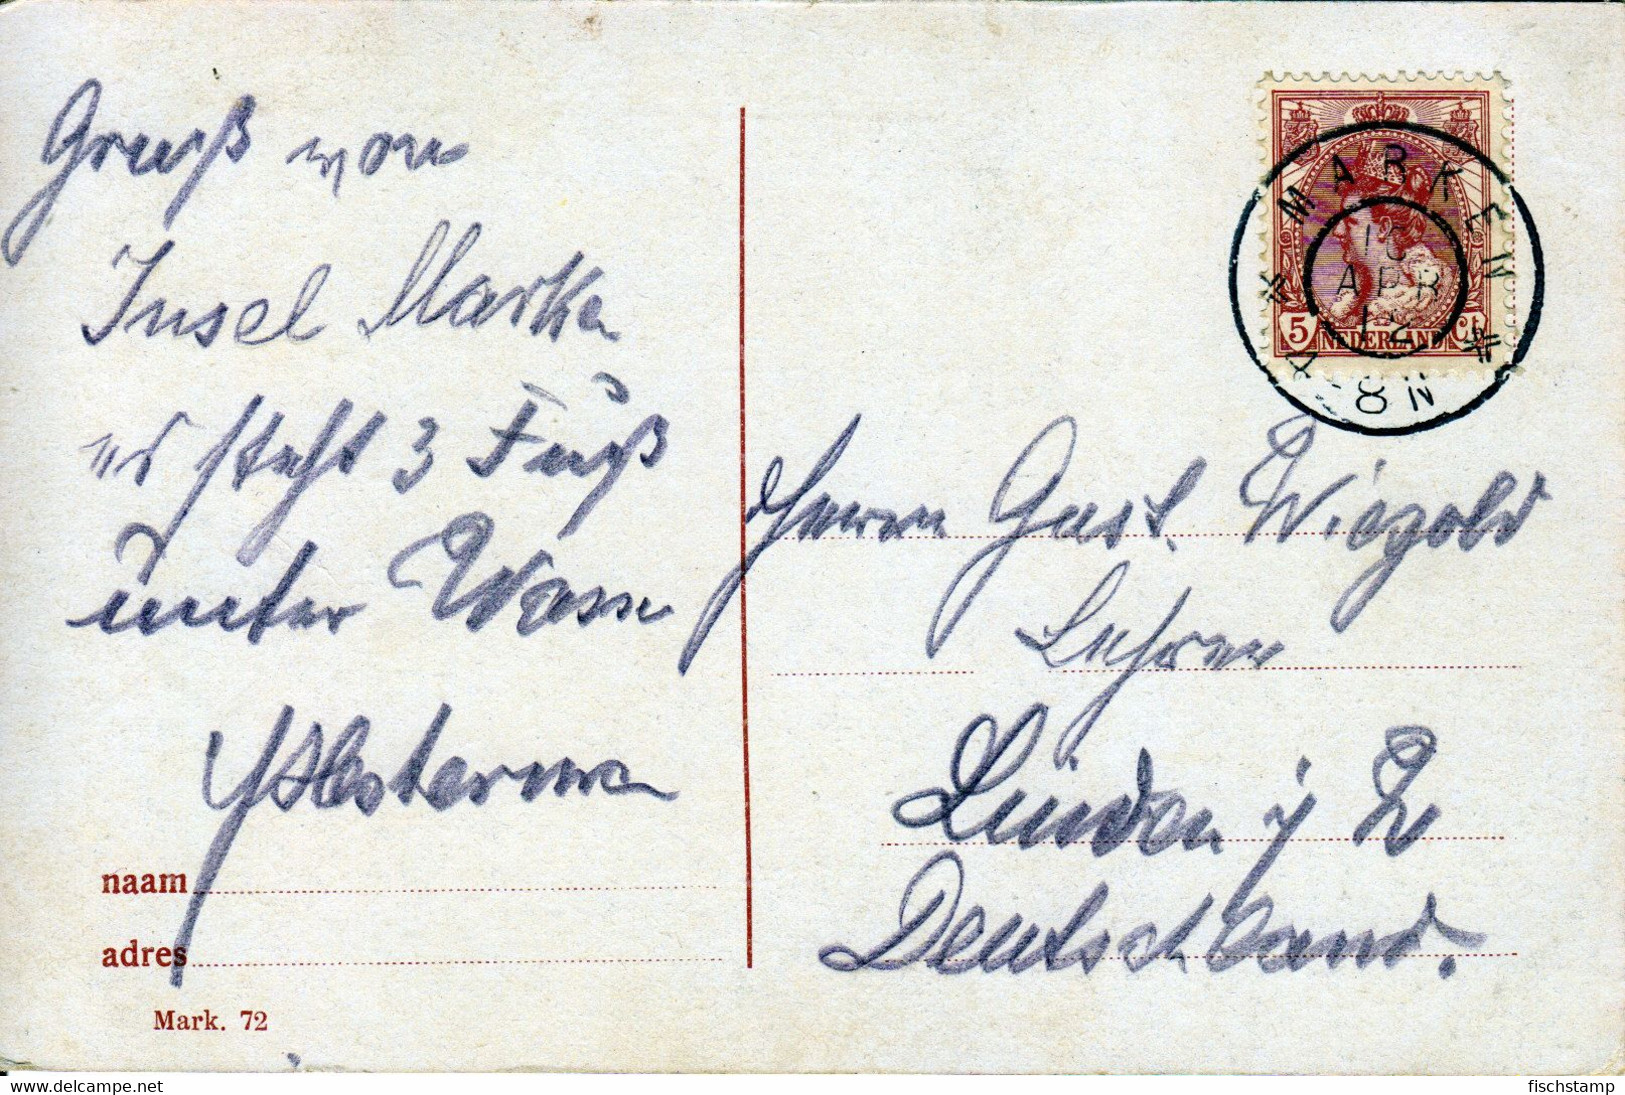 Gruß von
Insel Marken
es steht 3 Fuß
unter Wasser
naam
adres
Mark. 72
MARKEN
APR
12
8 N
5 NEDERLAND Ct
Herrn Gust. Wiegold
Lehrer
Linden
Deutschland.
www.delcampe.net
fischstamp